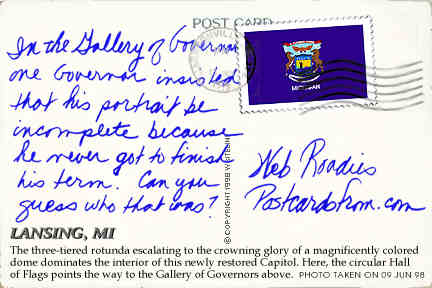 POST CARD
In the Gallery of Governors
one Governor insisted
that his portrait be
incomplete because
he never got to finish
his term. Can you
guess who that was?
MICHIGAN
Web Roadies
Postcardsfrom.com
© COPYRIGHT 1998 WEBLINK
LANSING, MI
The three-tiered rotunda escalating to the crowning glory of a magnificently colored
dome dominates the interior of this newly restored Capitol. Here, the circular Hall
of Flags points the way to the Gallery of Governors above. PHOTO TAKEN ON 09 JUN 98